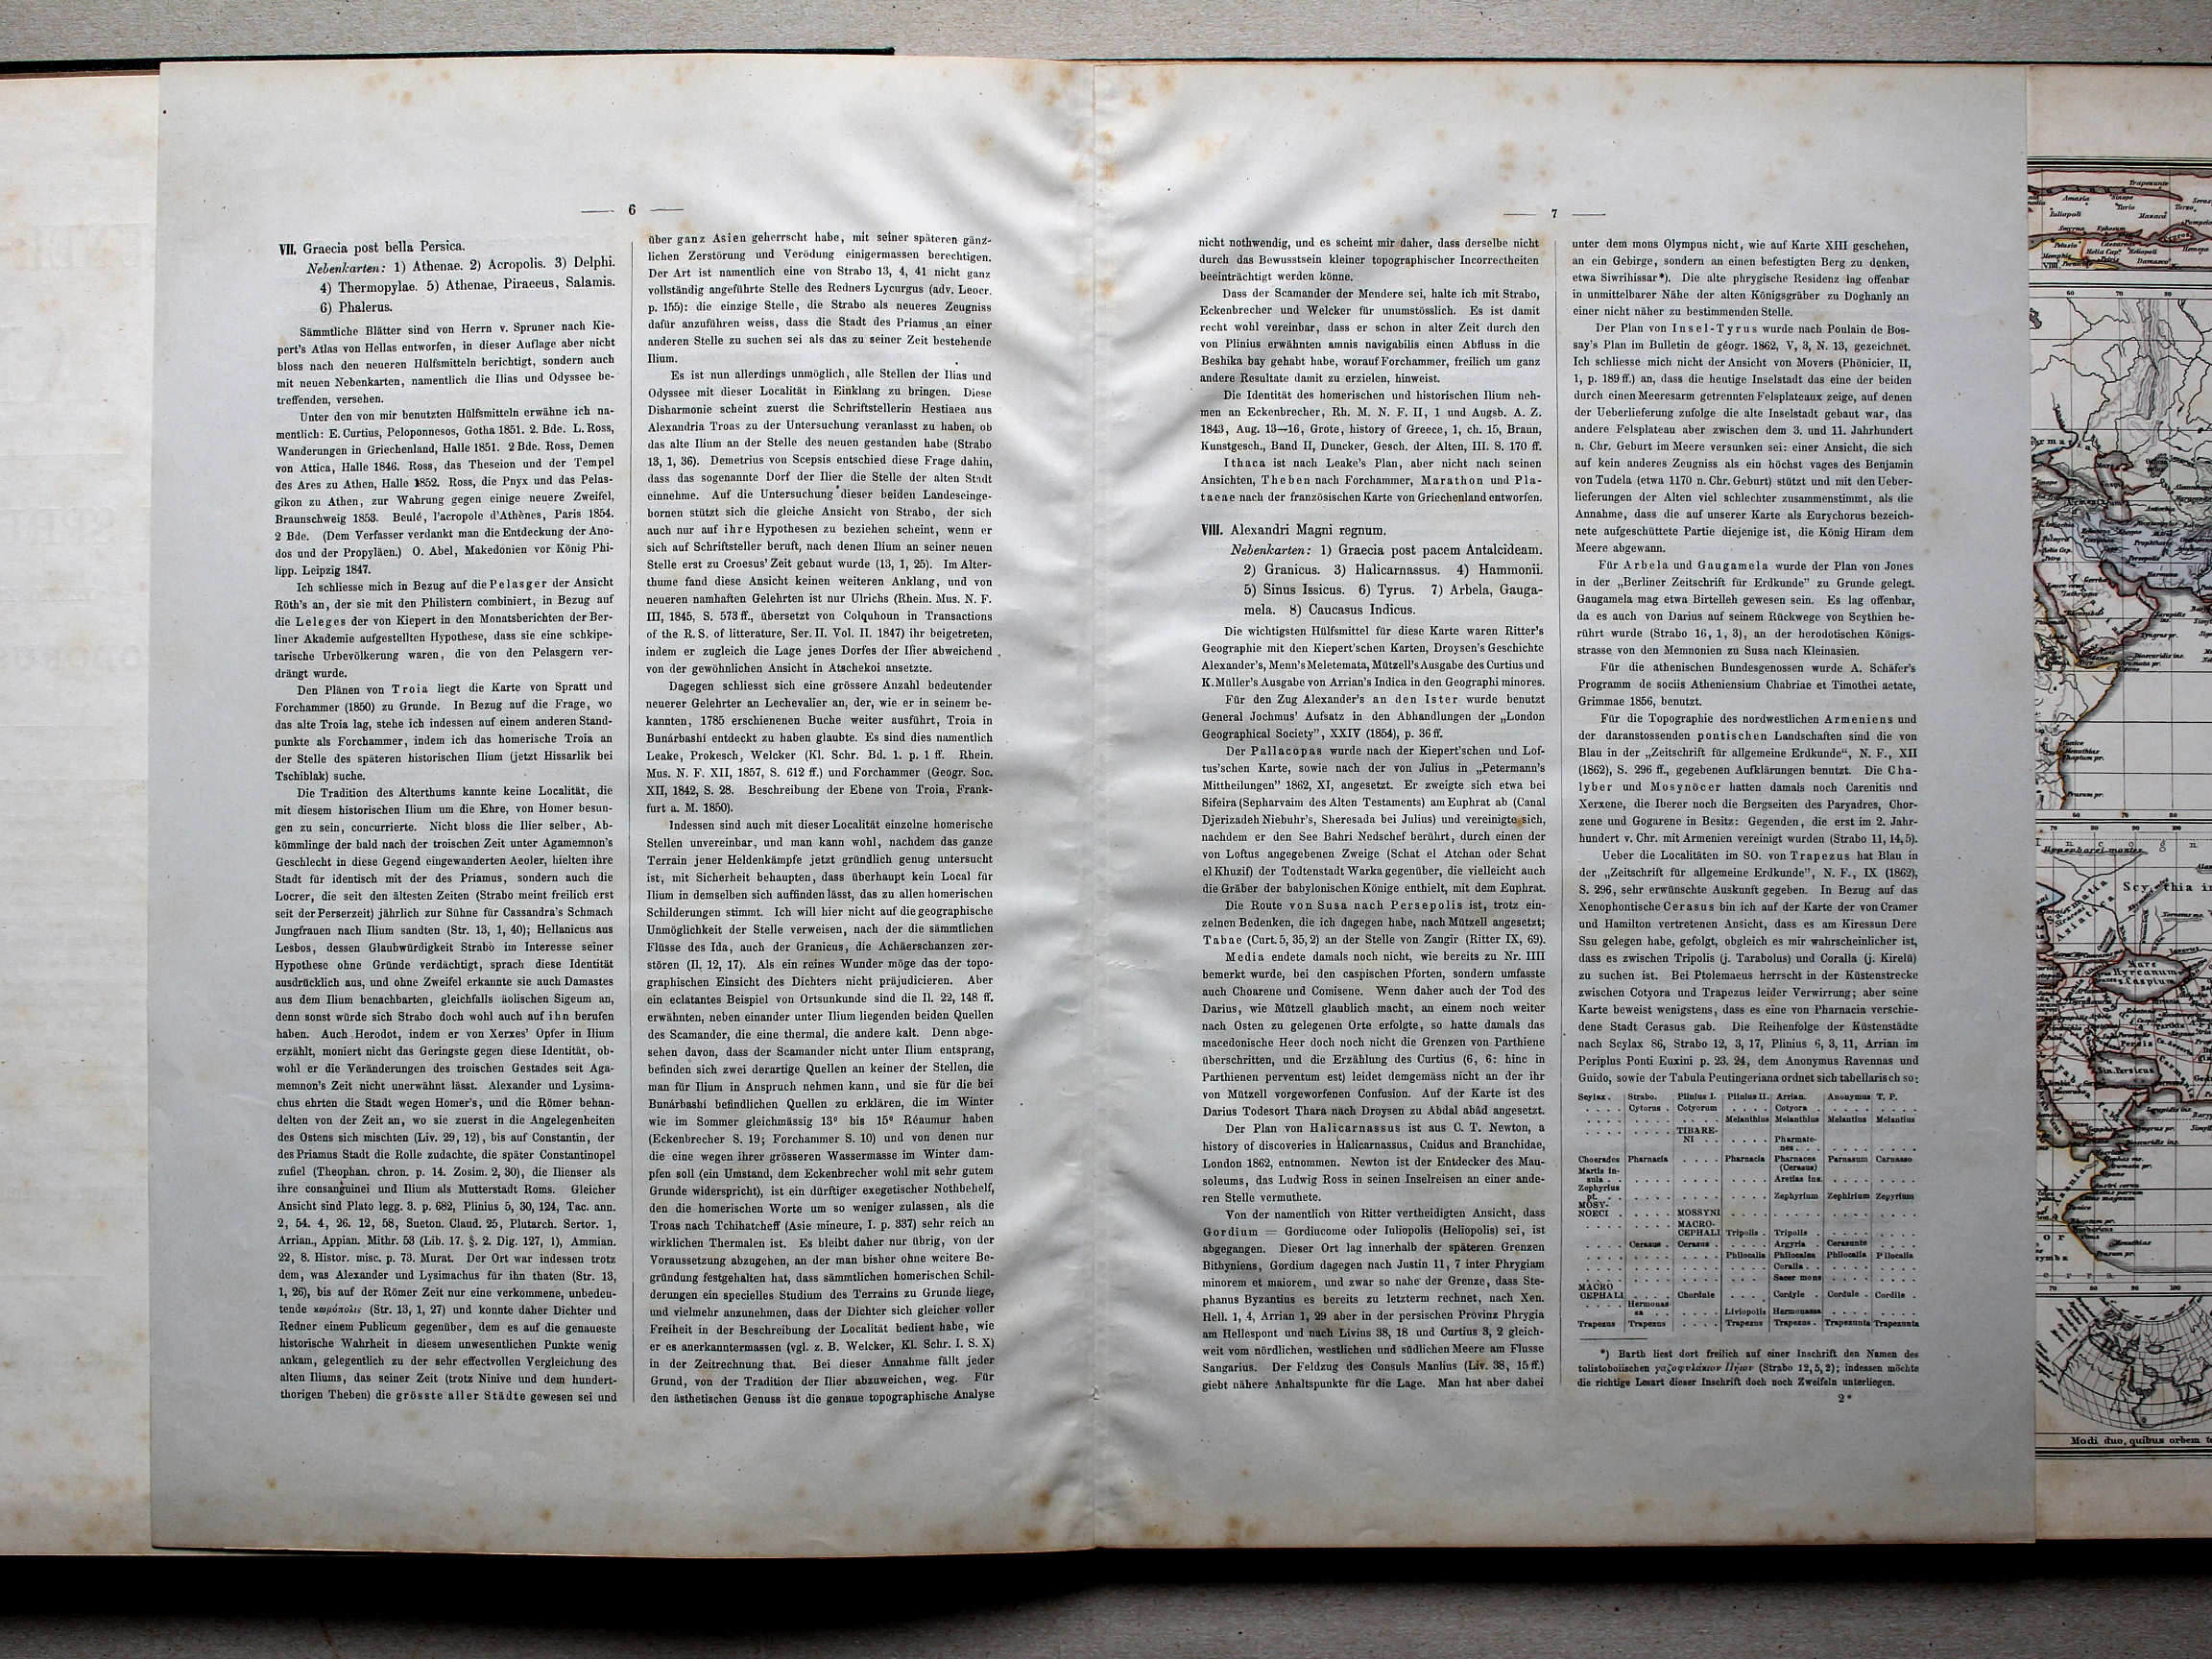 — 6 —
VII. Graecia post bella Persica.
Nebenkarten: 1) Athenae. 2) Acropolis. 3) Delphi.
4) Thermopylae. 5) Athenae, Piraeeus, Salamis.
6) Phalerus.
Sämmtliche Blätter sind von Herrn v. Spruner nach Kie-
pert's Atlas von Hellas entworfen, in dieser Auflage aber nicht
bloss nach den neueren Hülfsmitteln berichtigt, sondern auch
mit neuen Nebenkarten, namentlich die Ilias und Odyssee be-
treffenden, versehen.
Unter den von mir benutzten Hülfsmitteln erwähne ich na-
mentlich: E. Curtius, Peloponnesos, Gotha 1851. 2. Bde. L. Ross,
Wanderungen in Griechenland, Halle 1851. 2 Bde. Ross, Demen
von Attica, Halle 1846. Ross, das Theseion und der Tempel
des Ares zu Athen, Halle 1852. Ross, die Pnyx und das Pelas-
gikon zu Athen, zur Wahrung gegen einige neuere Zweifel,
Braunschweig 1853. Beulé, l'acropole d'Athènes, Paris 1854.
2 Bde. (Dem Verfasser verdankt man die Entdeckung der Ano-
dos und der Propyläen.) O. Abel, Makedonien vor König Phi-
lipp. Leipzig 1847.
Ich schliesse mich in Bezug auf die Pelasger der Ansicht
Röth's an, der sie mit den Philistern combiniert, in Bezug auf
die Leleges der von Kiepert in den Monatsberichten der Ber-
liner Akademie aufgestellten Hypothese, dass sie eine schkipe-
tarische Urbevölkerung waren, die von den Pelasgern ver-
drängt wurde.
Den Plänen von Troia liegt die Karte von Spratt und
Forchammer (1850) zu Grunde. In Bezug auf die Frage, wo
das alte Troia lag, stehe ich indessen auf einem anderen Stand-
punkte als Forchammer, indem ich das homerische Troia an
der Stelle des späteren historischen Ilium (jetzt Hissarlik bei
Tschiblak) suche.
Die Tradition des Alterthums kannte keine Localität, die
mit diesem historischen Ilium um die Ehre, von Homer besun-
gen zu sein, concurrierte. Nicht bloss die Ilier selber, Ab-
kömmlinge der bald nach der troischen Zeit unter Agamemnon's
Geschlecht in diese Gegend eingewanderten Aeoler, hielten ihre
Stadt für identisch mit der des Priamus, sondern auch die
Locrer, die seit den ältesten Zeiten (Strabo meint freilich erst
seit der Perserzeit) jährlich zur Sühne für Cassandra's Schmach
Jungfrauen nach Ilium sandten (Str. 13, 1, 40); Hellanicus aus
Lesbos, dessen Glaubwürdigkeit Strabo im Interesse seiner
Hypothese ohne Gründe verdächtigt, sprach diese Identität
ausdrücklich aus, und ohne Zweifel erkannte sie auch Damastes
aus dem Ilium benachbarten, gleichfalls äolischen Sigeum an,
denn sonst würde sich Strabo doch wohl auch auf ihn berufen
haben. Auch Herodot, indem er von Xerxes' Opfer in Ilium
erzählt, moniert nicht das Geringste gegen diese Identität, ob-
wohl er die Veränderungen des troischen Gestades seit Aga-
memnon's Zeit nicht unerwähnt lässt. Alexander und Lysima-
chus ehrten die Stadt wegen Homer's, und die Römer behan-
delten von der Zeit an, wo sie zuerst in die Angelegenheiten
des Ostens sich mischten (Liv. 29, 12), bis auf Constantin, der
des Priamus Stadt die Rolle zudachte, die später Constantinopel
zufiel (Theophan. chron. p. 14. Zosim. 2, 30), die Ilienser als
ihre consanguinei und Ilium als Mutterstadt Roms. Gleicher
Ansicht sind Plato legg. 3. p. 682, Plinius 5, 30, 124, Tac. ann.
2, 54. 4, 26. 12, 58, Sueton. Claud. 25, Plutarch. Sertor. 1,
Arrian., Appian. Mithr. 53 (Lib. 17. §. 2. Dig. 127, 1), Ammian.
22, 8. Histor. misc. p. 73. Murat. Der Ort war indessen trotz
dem, was Alexander und Lysimachus für ihn thaten (Str. 13,
1, 26), bis auf der Römer Zeit nur eine verkommene, unbedeu-
tende κωμόπολις (Str. 13, 1, 27) und konnte daher Dichter und
Redner einem Publicum gegenüber, dem es auf die genaueste
historische Wahrheit in diesem unwesentlichen Punkte wenig
ankam, gelegentlich zu der sehr effectvollen Vergleichung des
alten Iliums, das seiner Zeit (trotz Ninive und dem hundert-
thorigen Theben) die grösste aller Städte gewesen sei und
über ganz Asien geherrscht habe, mit seiner späteren gänz-
lichen Zerstörung und Verödung einigermassen berechtigen.
Der Art ist namentlich eine von Strabo 13, 4, 41 nicht ganz
vollständig angeführte Stelle des Redners Lycurgus (adv. Leocr.
p. 155): die einzige Stelle, die Strabo als neueres Zeugniss
dafür anzuführen weiss, dass die Stadt des Priamus an einer
anderen Stelle zu suchen sei als das zu seiner Zeit bestehende
Ilium.
Es ist nun allerdings unmöglich, alle Stellen der Ilias und
Odyssee mit dieser Localität in Einklang zu bringen. Diese
Disharmonie scheint zuerst die Schriftstellerin Hestiaea aus
Alexandria Troas zu der Untersuchung veranlasst zu haben, ob
das alte Ilium an der Stelle des neuen gestanden habe (Strabo
13, 1, 36). Demetrius von Scepsis entschied diese Frage dahin,
dass das sogenannte Dorf der Ilier die Stelle der alten Stadt
einnehme. Auf die Untersuchung dieser beiden Landeseinge-
bornen stützt sich die gleiche Ansicht von Strabo, der sich
auch nur auf ihre Hypothesen zu beziehen scheint, wenn er
sich auf Schriftsteller beruft, nach denen Ilium an seiner neuen
Stelle erst zu Croesus' Zeit gebaut wurde (13, 1, 25). Im Alter-
thume fand diese Ansicht keinen weiteren Anklang, und von
neueren namhaften Gelehrten ist nur Ulrichs (Rhein. Mus. N. F.
III, 1845, S. 573 ff., übersetzt von Colquhoun in Transactions
of the R. S. of litterature, Ser. II. Vol. II. 1847) ihr beigetreten,
indem er zugleich die Lage jenes Dorfes der Ilier abweichend
von der gewöhnlichen Ansicht in Atschekoi ansetzte.
Dagegen schliesst sich eine grössere Anzahl bedeutender
neuerer Gelehrter an Lechevalier an, der, wie er in seinem be-
kannten, 1785 erschienenen Buche weiter ausführt, Troia in
Bunárbashi entdeckt zu haben glaubte. Es sind dies namentlich
Leake, Prokesch, Welcker (Kl. Schr. Bd. 1. p. 1 ff. Rhein.
Mus. N. F. XII, 1857, S. 612 ff.) und Forchammer (Geogr. Soc.
XII, 1842, S. 28. Beschreibung der Ebene von Troia, Frank-
furt a. M. 1850).
Indessen sind auch mit dieser Localität einzelne homerische
Stellen unvereinbar, und man kann wohl, nachdem das ganze
Terrain jener Heldenkämpfe jetzt gründlich genug untersucht
ist, mit Sicherheit behaupten, dass überhaupt kein Local für
Ilium in demselben sich auffinden lässt, das zu allen homerischen
Schilderungen stimmt. Ich will hier nicht auf die geographische
Unmöglichkeit der Stelle verweisen, nach der die sämmtlichen
Flüsse des Ida, auch der Granicus, die Achäerschanzen zer-
stören (Il. 12, 17). Als ein reines Wunder möge das der topo-
graphischen Einsicht des Dichters nicht präjudicieren. Aber
ein eclatantes Beispiel von Ortsunkunde sind die Il. 22, 148 ff.
erwähnten, neben einander unter Ilium liegenden beiden Quellen
des Scamander, die eine thermal, die andere kalt. Denn abge-
sehen davon, dass der Scamander nicht unter Ilium entsprang,
befinden sich zwei derartige Quellen an keiner der Stellen, die
man für Ilium in Anspruch nehmen kann, und sie für die bei
Bunárbashi befindlichen Quellen zu erklären, die im Winter
wie im Sommer gleichmässig 13° bis 15° Réaumur haben
(Eckenbrecher S. 19; Forchammer S. 10) und von denen nur
die eine wegen ihrer grösseren Wassermasse im Winter dam-
pfen soll (ein Umstand, dem Eckenbrecher wohl mit sehr gutem
Grunde widerspricht), ist ein dürftiger exegetischer Nothbehelf,
den die homerischen Worte um so weniger zulassen, als die
Troas nach Tchihatcheff (Asie mineure, I. p. 337) sehr reich an
wirklichen Thermalen ist. Es bleibt daher nur übrig, von der
Voraussetzung abzugehen, an der man bisher ohne weitere Be-
gründung festgehalten hat, dass sämmtlichen homerischen Schil-
derungen ein specielles Studium des Terrains zu Grunde liege,
und vielmehr anzunehmen, dass der Dichter sich gleicher voller
Freiheit in der Beschreibung der Localität bedient habe, wie
er es anerkanntermassen (vgl. z. B. Welcker, Kl. Schr. I. S. X)
in der Zeitrechnung that. Bei dieser Annahme fällt jeder
Grund, von der Tradition der Ilier abzuweichen, weg. Für
den ästhetischen Genuss ist die genaue topographische Analyse
— 7 —
nicht nothwendig, und es scheint mir daher, dass derselbe nicht
durch das Bewusstsein kleiner topographischer Incorrectheiten
beeinträchtigt werden könne.
Dass der Scamander der Mendere sei, halte ich mit Strabo,
Eckenbrecher und Welcker für unumstösslich. Es ist damit
recht wohl vereinbar, dass er schon in alter Zeit durch den
von Plinius erwähnten amnis navigabilis einen Abfluss in die
Beshika bay gehabt habe, worauf Forchammer, freilich um ganz
andere Resultate damit zu erzielen, hinweist.
Die Identität des homerischen und historischen Ilium neh-
men an Eckenbrecher, Rh. M. N. F. II, 1 und Augsb. A. Z.
1843, Aug. 13—16, Grote, history of Greece, 1, ch. 15, Braun,
Kunstgesch., Band II, Duncker, Gesch. der Alten, III. S. 170 ff.
Ithaca ist nach Leake's Plan, aber nicht nach seinen
Ansichten, Theben nach Forchammer, Marathon und Pla-
taeae nach der französischen Karte von Griechenland entworfen.
VIII. Alexandri Magni regnum.
Nebenkarten: 1) Graecia post pacem Antalcideam.
2) Granicus. 3) Halicarnassus. 4) Hammonii.
5) Sinus Issicus. 6) Tyrus. 7) Arbela, Gauga-
mela. 8) Caucasus Indicus.
Die wichtigsten Hülfsmittel für diese Karte waren Ritter's
Geographie mit den Kiepert'schen Karten, Droysen's Geschichte
Alexander's, Menn's Meletemata, Mützell's Ausgabe des Curtius und
K. Müller's Ausgabe von Arrian's Indica in den Geographi minores.
Für den Zug Alexander's an den Ister wurde benutzt
General Jochmus' Aufsatz in den Abhandlungen der „London
Geographical Society", XXIV (1854), p. 36 ff.
Der Pallacopas wurde nach der Kiepert'schen und Lof-
tus'schen Karte, sowie nach der von Julius in „Petermann's
Mittheilungen" 1862, XI, angesetzt. Er zweigte sich etwa bei
Sifeira (Sepharvaim des Alten Testaments) am Euphrat ab (Canal
Djerizadeh Niebuhr's, Sheresada bei Julius) und vereinigte sich,
nachdem er den See Bahri Nedschef berührt, durch einen der
von Loftus angegebenen Zweige (Schat el Atchan oder Schat
el Khuzif) der Todtenstadt Warka gegenüber, die vielleicht auch
die Gräber der babylonischen Könige enthielt, mit dem Euphrat.
Die Route von Susa nach Persepolis ist, trotz ein-
zelnen Bedenken, die ich dagegen habe, nach Mützell angesetzt;
Tabae (Curt. 5, 35, 2) an der Stelle von Zangir (Ritter IX, 69).
Media endete damals noch nicht, wie bereits zu Nr. IIII
bemerkt wurde, bei den caspischen Pforten, sondern umfasste
auch Choarene und Comisene. Wenn daher auch der Tod des
Darius, wie Mützell glaublich macht, an einem noch weiter
nach Osten zu gelegenen Orte erfolgte, so hatte damals das
macedonische Heer doch noch nicht die Grenzen von Parthiene
überschritten, und die Erzählung des Curtius (6, 6: hinc in
Parthienen perventum est) leidet demgemäss nicht an der ihr
von Mützell vorgeworfenen Confusion. Auf der Karte ist des
Darius Todesort Thara nach Droysen zu Abdal abâd angesetzt.
Der Plan von Halicarnassus ist aus C. T. Newton, a
history of discoveries in Halicarnassus, Cnidus and Branchidae,
London 1862, entnommen. Newton ist der Entdecker des Mau-
soleums, das Ludwig Ross in seinen Inselreisen an einer ande-
ren Stelle vermuthete.
Von der namentlich von Ritter vertheidigten Ansicht, dass
Gordium = Gordiucome oder Iuliopolis (Heliopolis) sei, ist
abgegangen. Dieser Ort lag innerhalb der späteren Grenzen
Bithyniens, Gordium dagegen nach Justin 11, 7 inter Phrygiam
minorem et maiorem, und zwar so nahe der Grenze, dass Ste-
phanus Byzantius es bereits zu letzterm rechnet, nach Xen.
Hell. 1, 4, Arrian 1, 29 aber in der persischen Provinz Phrygia
am Hellespont und nach Livius 38, 18 und Curtius 3, 2 gleich-
weit vom nördlichen, westlichen und südlichen Meere am Flusse
Sangarius. Der Feldzug des Consuls Manlius (Liv. 38, 15 ff.)
giebt nähere Anhaltspunkte für die Lage. Man hat aber dabei
unter dem mons Olympus nicht, wie auf Karte XIII geschehen,
an ein Gebirge, sondern an einen befestigten Berg zu denken,
etwa Siwrihissar*). Die alte phrygische Residenz lag offenbar
in unmittelbarer Nähe der alten Königsgräber zu Doghanly an
einer nicht näher zu bestimmenden Stelle.
Der Plan von Insel-Tyrus wurde nach Poulain de Bos-
say's Plan im Bulletin de géogr. 1862, V, 3, N. 13, gezeichnet.
Ich schliesse mich nicht der Ansicht von Movers (Phönicier, II,
1, p. 189 ff.) an, dass die heutige Inselstadt das eine der beiden
durch einen Meeresarm getrennten Felsplateaux zeige, auf denen
der Ueberlieferung zufolge die alte Inselstadt gebaut war, das
andere Felsplateau aber zwischen dem 3. und 11. Jahrhundert
n. Chr. Geburt im Meere versunken sei: einer Ansicht, die sich
auf kein anderes Zeugniss als ein höchst vages des Benjamin
von Tudela (etwa 1170 n. Chr. Geburt) stützt und mit den Ueber-
lieferungen der Alten viel schlechter zusammenstimmt, als die
Annahme, dass die auf unserer Karte als Eurychorus bezeich-
nete aufgeschüttete Partie diejenige ist, die König Hiram dem
Meere abgewann.
Für Arbela und Gaugamela wurde der Plan von Jones
in der „Berliner Zeitschrift für Erdkunde" zu Grunde gelegt.
Gaugamela mag etwa Birtelleh gewesen sein. Es lag offenbar,
da es auch von Darius auf seinem Rückwege von Scythien be-
rührt wurde (Strabo 16, 1, 3), an der herodotischen Königs-
strasse von den Memnonien zu Susa nach Kleinasien.
Für die athenischen Bundesgenossen wurde A. Schäfer's
Programm de sociis Atheniensium Chabriae et Timothei aetate,
Grimmae 1856, benutzt.
Für die Topographie des nordwestlichen Armeniens und
der daranstossenden pontischen Landschaften sind die von
Blau in der „Zeitschrift für allgemeine Erdkunde", N. F., XII
(1862), S. 296 ff., gegebenen Aufklärungen benutzt. Die Cha-
lyber und Mosynöcer hatten damals noch Carenitis und
Xerxene, die Iberer noch die Bergseiten des Paryadres, Chor-
zene und Gogarene in Besitz: Gegenden, die erst im 2. Jahr-
hundert v. Chr. mit Armenien vereinigt wurden (Strabo 11, 14, 5).
Ueber die Localitäten im SO. von Trapezus hat Blau in
der „Zeitschrift für allgemeine Erdkunde", N. F., IX (1862),
S. 296, sehr erwünschte Auskunft gegeben. In Bezug auf das
Xenophontische Cerasus bin ich auf der Karte der von Cramer
und Hamilton vertretenen Ansicht, dass es am Kiressun Dere
Ssu gelegen habe, gefolgt, obgleich es mir wahrscheinlicher ist,
dass es zwischen Tripolis (j. Tarabolus) und Coralla (j. Kirelü)
zu suchen ist. Bei Ptolemaeus herrscht in der Küstenstrecke
zwischen Cotyora und Trapezus leider Verwirrung; aber seine
Karte beweist wenigstens, dass es eine von Pharnacia verschie-
dene Stadt Cerasus gab. Die Reihenfolge der Küstenstädte
nach Scylax 86, Strabo 12, 3, 17, Plinius 6, 3, 11, Arrian im
Periplus Ponti Euxini p. 23. 24, dem Anonymus Ravennas und
Guido, sowie der Tabula Peutingeriana ordnet sich tabellarisch so:
Scylax. Strabo. Plinius I. Plinius II. Arrian. Anonymus T. P.
Cytorus Cotyorum Cotyora
Melanthius Melanthius Melantius Melantius
TIBARE-
NI Pharmate-
nes
Choerades Pharnacia Pharnacia Pharnacea Parnasum Carnasso
(Cerasus)
Martis in-
sula Aretias ins.
Zephyrius
pt. Zephyrium Zephirium Zepyrium
MOSY-
NOECI MOSSYNI
MACRO-
CEPHALI Tripolis Tripolis
Cerasus Cerasus Argyria Cerasunte
Philocalia Philocalea Philocalia Pilocalia
Coralla
Sacer mons
MACRO
CEPHALI Chordule Cordyle Cordule Cordile
Hermonas
sa Liviopolis Hermonassa
Trapezus Trapezus Trapezus Trapezus Trapezunta Trapezunta
*) Barth liest dort freilich auf einer Inschrift den Namen des
tolistoboiischen (Strabo 12, 5, 2); indessen möchte
die richtige Lesart dieser Inschrift doch noch Zweifeln unterliegen.
2*
Trapezunte
Mare
Hyrcanum
s. Caspium
Sin. Persicus
Modi duo, quibus orbem